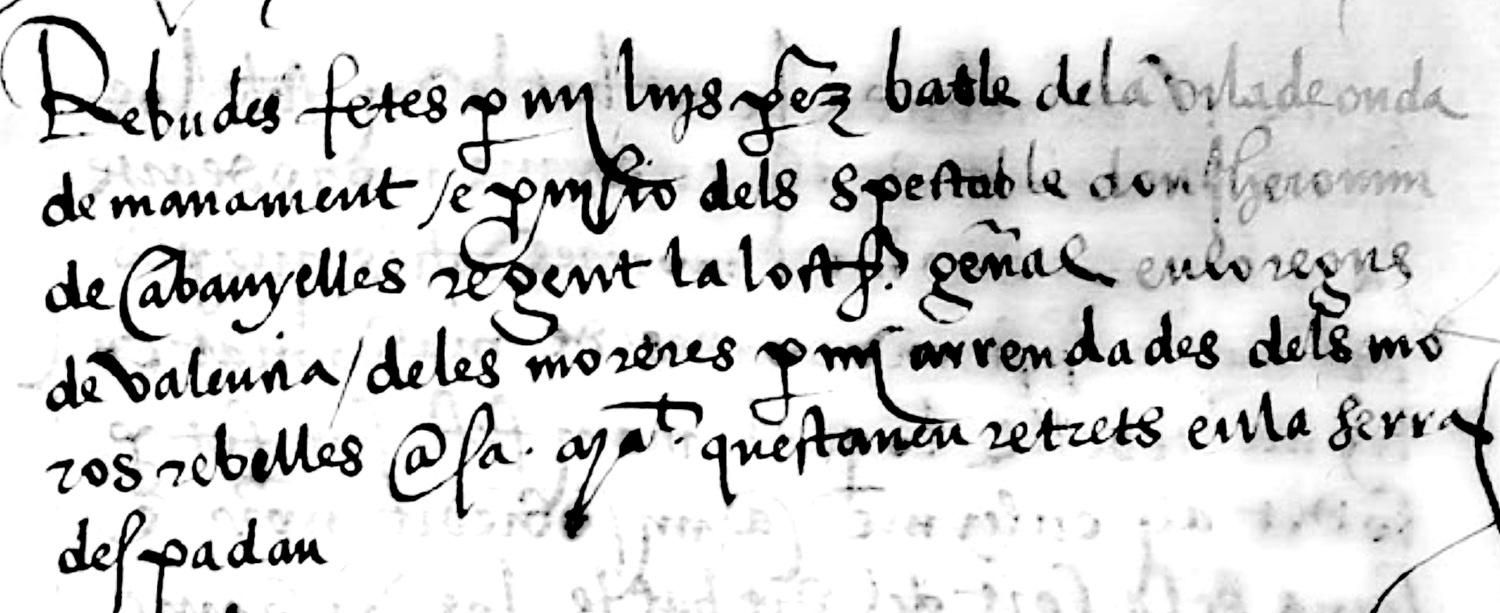 Rebudes fetes p mi luys perez batle de la vila de onda
de manament / e pmisio dels spectable don Iheronim
de Cabanyelles regent la loctt.ª gēnal en lo regne
de Valencia / de les moreres p mi arrendades dels mo
ros rebelles @ sa . mat. questaven retrets en la serra
despadan